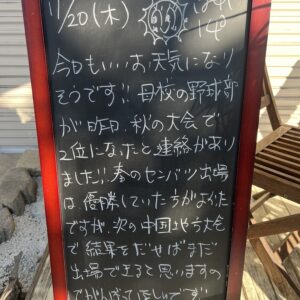 11/20(木)
14°
今日もいいお天気になり
そうです!! 母校の野球部
が昨日、秋の大会で
2位になったと連絡があり
ました!! 春のセンバツ出場
は優勝していた方がよかった
ですが、次の中国地方大会
で結果をだせばまだ
出場できると思いますの
でがんばってほしいです!